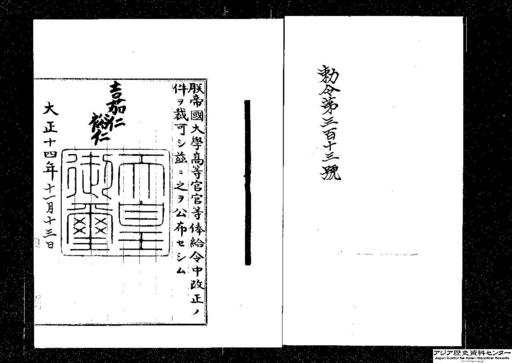 勅令第三百十三號
朕帝國大學高等官官等俸給令中改正ノ
件ヲ裁可シ茲ニ之ヲ公布セシム
嘉仁
裕仁
天皇御璽
大正十四年十一月十三日
アジア歴史資料センター
Japan Center for Asian Historical Records